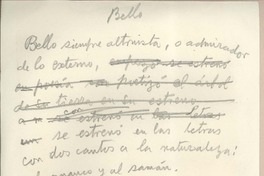 Bello
Bello siempre altruista, o admirador
de lo externo, empezó se estrenó
en poesía no protegió al árbol
de la tierra en su estreno
se estrenó en las letras
se estrenó en las letras
con dos cantos a la naturaleza:
y al samán.